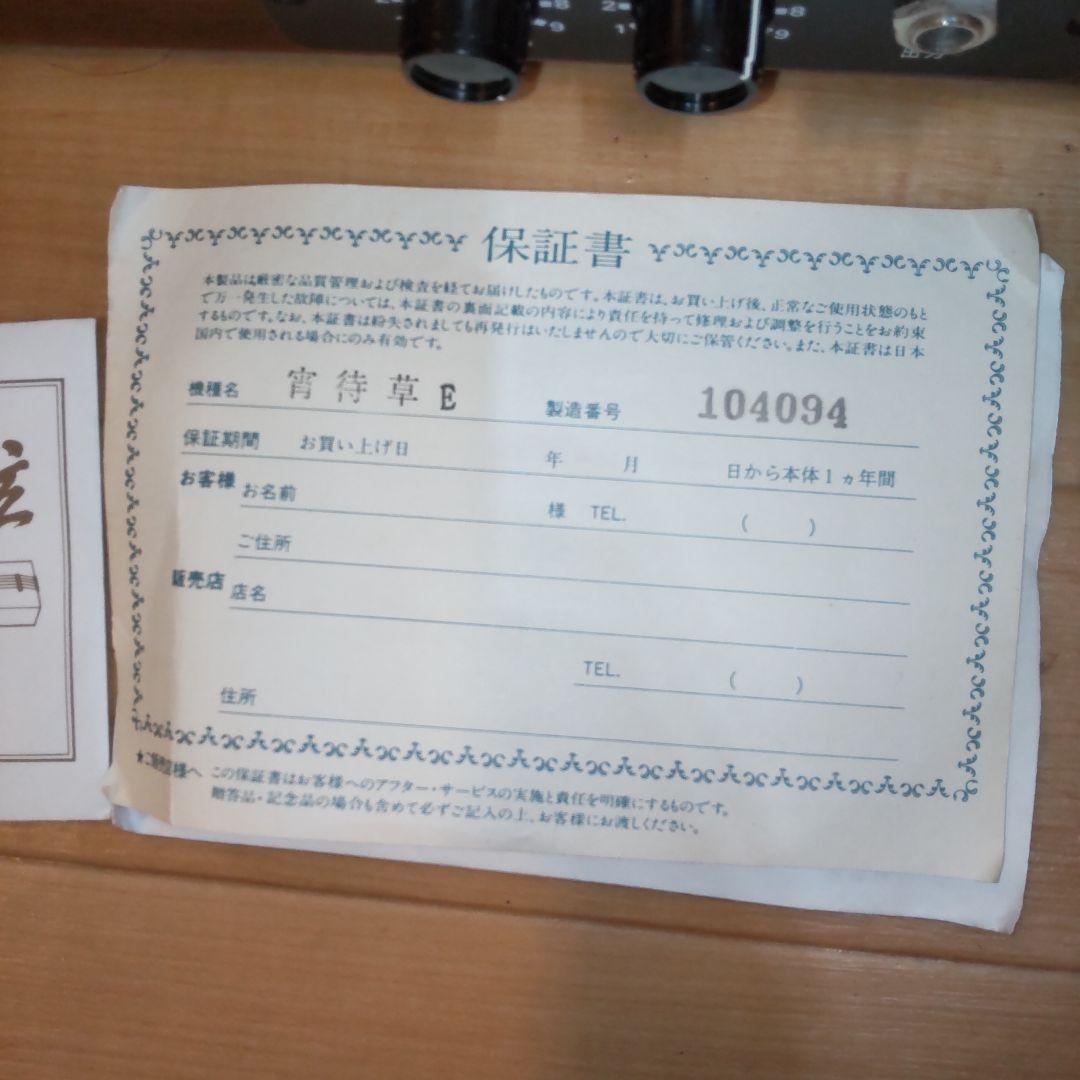 2 8 2 8
9 1 9
出力
保証書
本製品は厳密な品質管理および検査を経てお届けしたものです。本証書は、お買い上げ後、正常なご使用状態のもと
で万一発生した故障については、本証書の裏面記載の内容により責任を持って修理および調整を行うことをお約束
するものです。なお、本証書は紛失されましても再発行はいたしませんので大切にご保管ください。また、本証書は日本
国内で使用される場合にのみ有効です。
機種名 宵待草 E 製造番号 104094
保証期間 お買い上げ日 年 月 日から本体1ヵ年間
お客様 お名前 様 TEL. ( )
ご住所
販売店 店名
TEL. ( )
住所
★ご販売店様へ この保証書はお客様へのアフター・サービスの実施と責任を明確にするものです。
贈答品・記念品の場合も含めて必ずご記入の上、お客様にお渡しください。